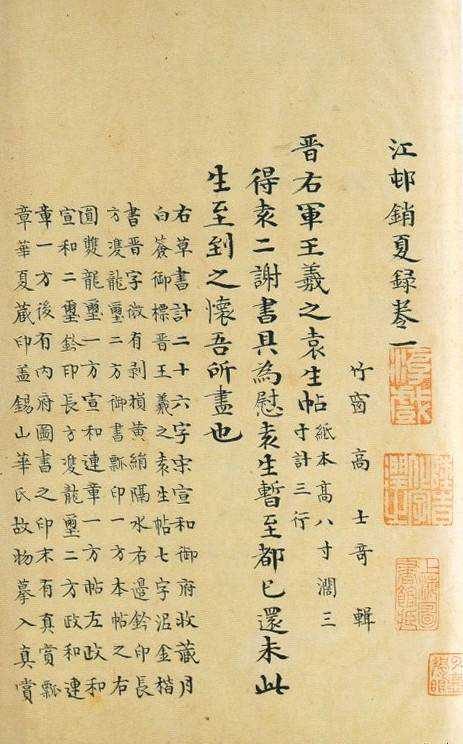 江邨銷夏録卷一
竹窗高士奇輯
晋右軍王羲之袁生帖紙本高八寸濶三寸計三行
得袁二謝書具為慰袁生暫至都已還未此
生至到之懷吾所盡也
右草書計二十六字宋宣和御府收藏月
白簽御標晋王羲之袁生帖七字泥金楷
書晋字微有剥損黄絹隔水右邉鈐印長
方𩀱龍璽二方御書瓢印一方本帖之右
圓𩀱龍璽一方宣和連章一方帖左政和
宣和二璽鈐印長方𩀱龍璽二方政和連
章一方後有内府圖書之印末有真賞瓢
章華夏蔵印盖錫山華氏故物摹入真賞